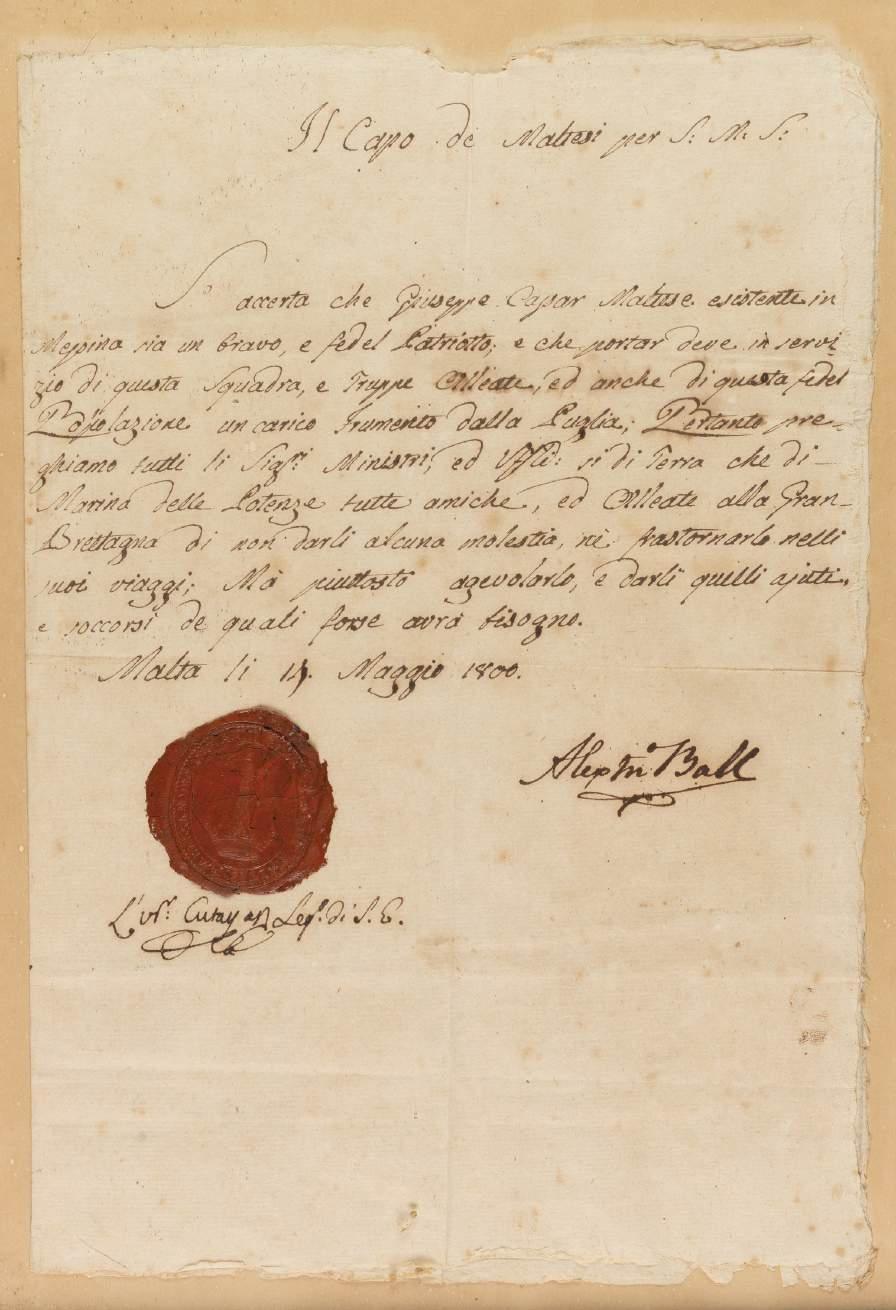 Il Capo de Maltesi per S: M: S:
Si accerta che Giuseppe Capar Maltese esistente in
Messina sia un bravo, e fedel Patriotto; e che portar deve in servi-
zio di questa Squadra, e Truppe Alleate, ed anche di questa fedel
Popolazione un carico frumento dalla Puglia; Pertanto pre-
ghiamo tutti li Sigri: Ministri, ed Uffli: si di Terra che di
Marina delle Potenze tutte amiche, ed Alleate alla Gran-
Brettagna di non darli alcuna molestia, nè frastornarlo nelli
suoi viaggi; Mà piuttosto agevolarlo, e darli quelli ajuti,
e soccorsi de quali forse avrà bisogno.
Malta li 14. Maggio 1800.
Alexr. Ball
di S. E.